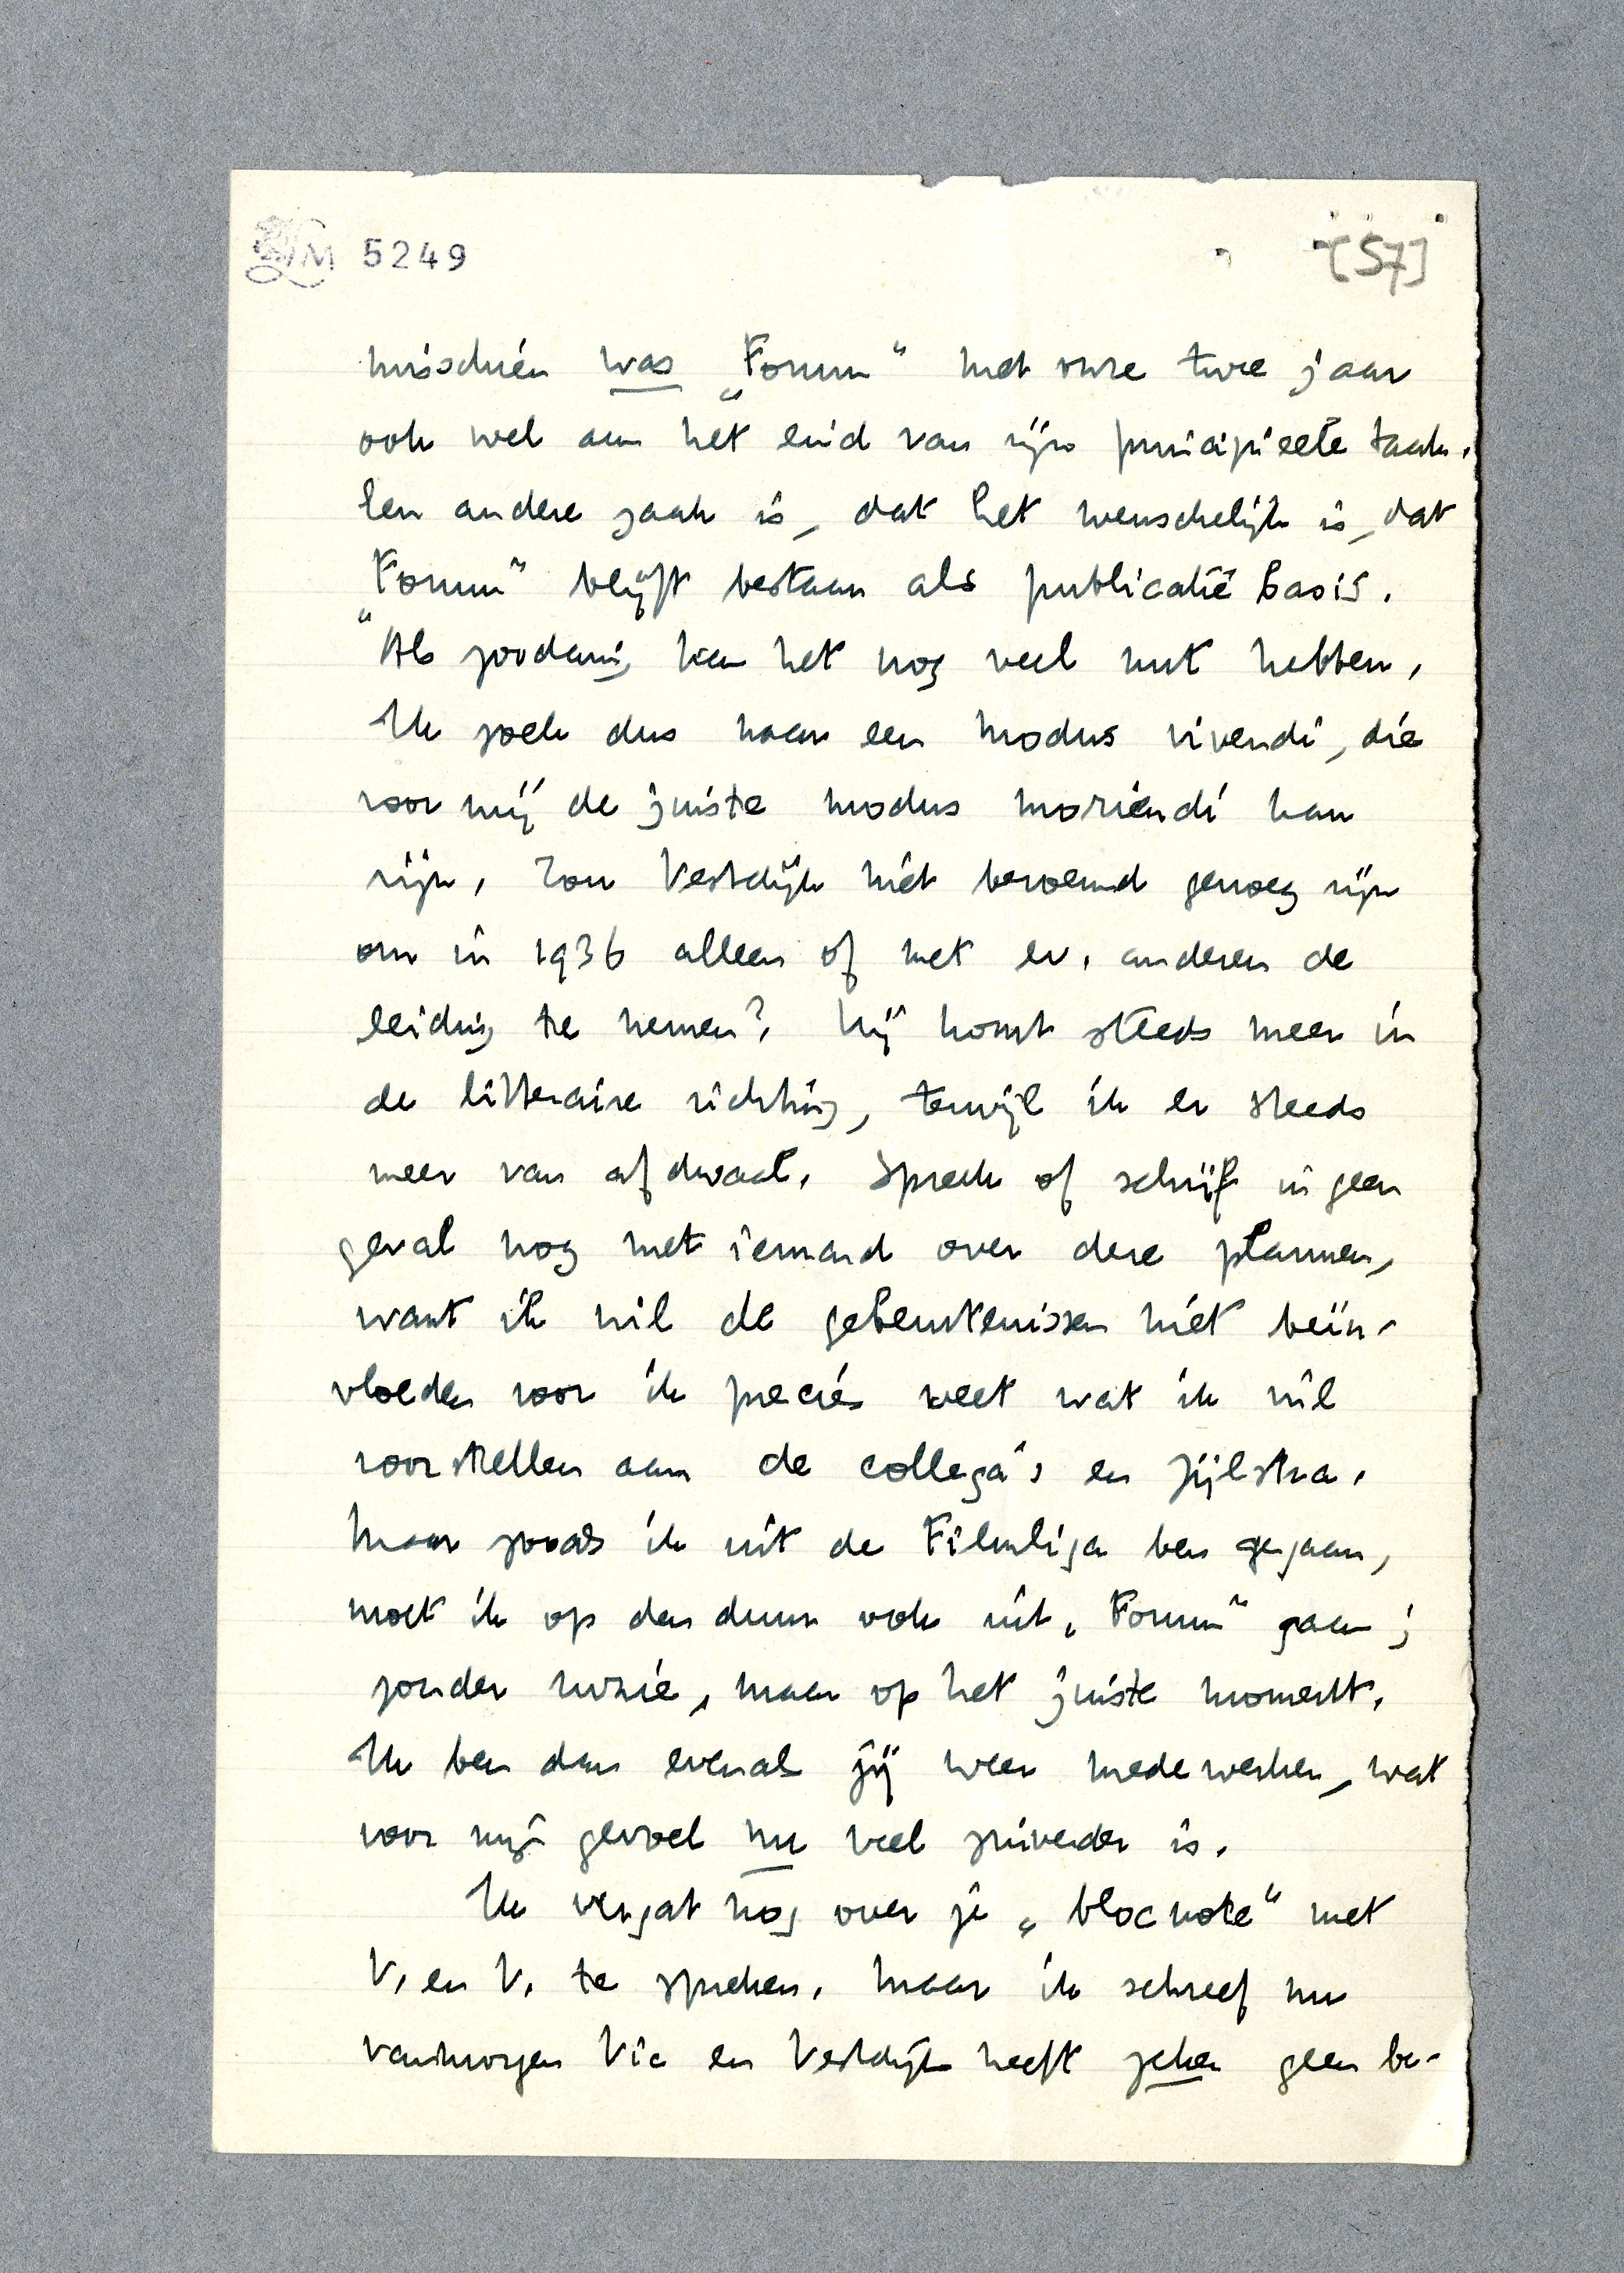 LM 5249
[57]
misschien was „Forum" met onze twee jaar
ook wel aan het eind van zijn principieele taak.
Een andere zaak is, dat het wenschelijk is, dat
„Forum" blijft bestaan als publicatie basis.
Als zoodanig kan het nog veel nut hebben.
Ik zoek dus naar een modus vivendi, die
voor mij de juiste modus moriendi kan
zijn. Zou Vestdijk niet beroemd genoeg zijn
om in 1936 alleen of met ev. anderen de
leiding te nemen? Hij komt steeds meer in
de litteraire richting, terwijl ik er steeds
meer van afdwaal. Spreek of schrijf in geen
geval nog met iemand over deze plannen,
want ik wil de gebeurtenissen niet beïn-
vloeden voor ik precies weet wat ik wil
voorstellen aan de collega's en Zijlstra.
Maar zooals ik uit de Filmliga ben gegaan,
moet ik op den duur ook uit „Forum" gaan;
zonder ruzie, maar op het juiste moment.
Ik ben dan evenals jij weer medewerker, wat
voor mijn gevoel nu veel zuiverder is.
Ik vergat nog over je „blocnote" met
V. en V. te spreken. Maar ik schreef nu
vanmorgen Vic en Vestdijk heeft zeker geen be-